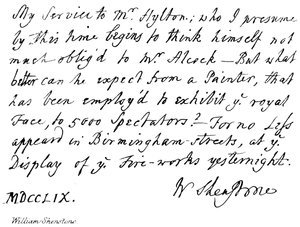 My Service to Mr. Hylton; who I presume
by this time begins to think himself not
much oblig'd to Mr. Alcock — But what
better can he expect from a Painter, that
has been employ'd to exhibit ye royal
Face, to 5000 Spectators? — For no less
appeard in Birmingham streets, at ye
Display of ye Fire-works yesternight.
W Shenstone
MDCCLIX.
William Shenstone